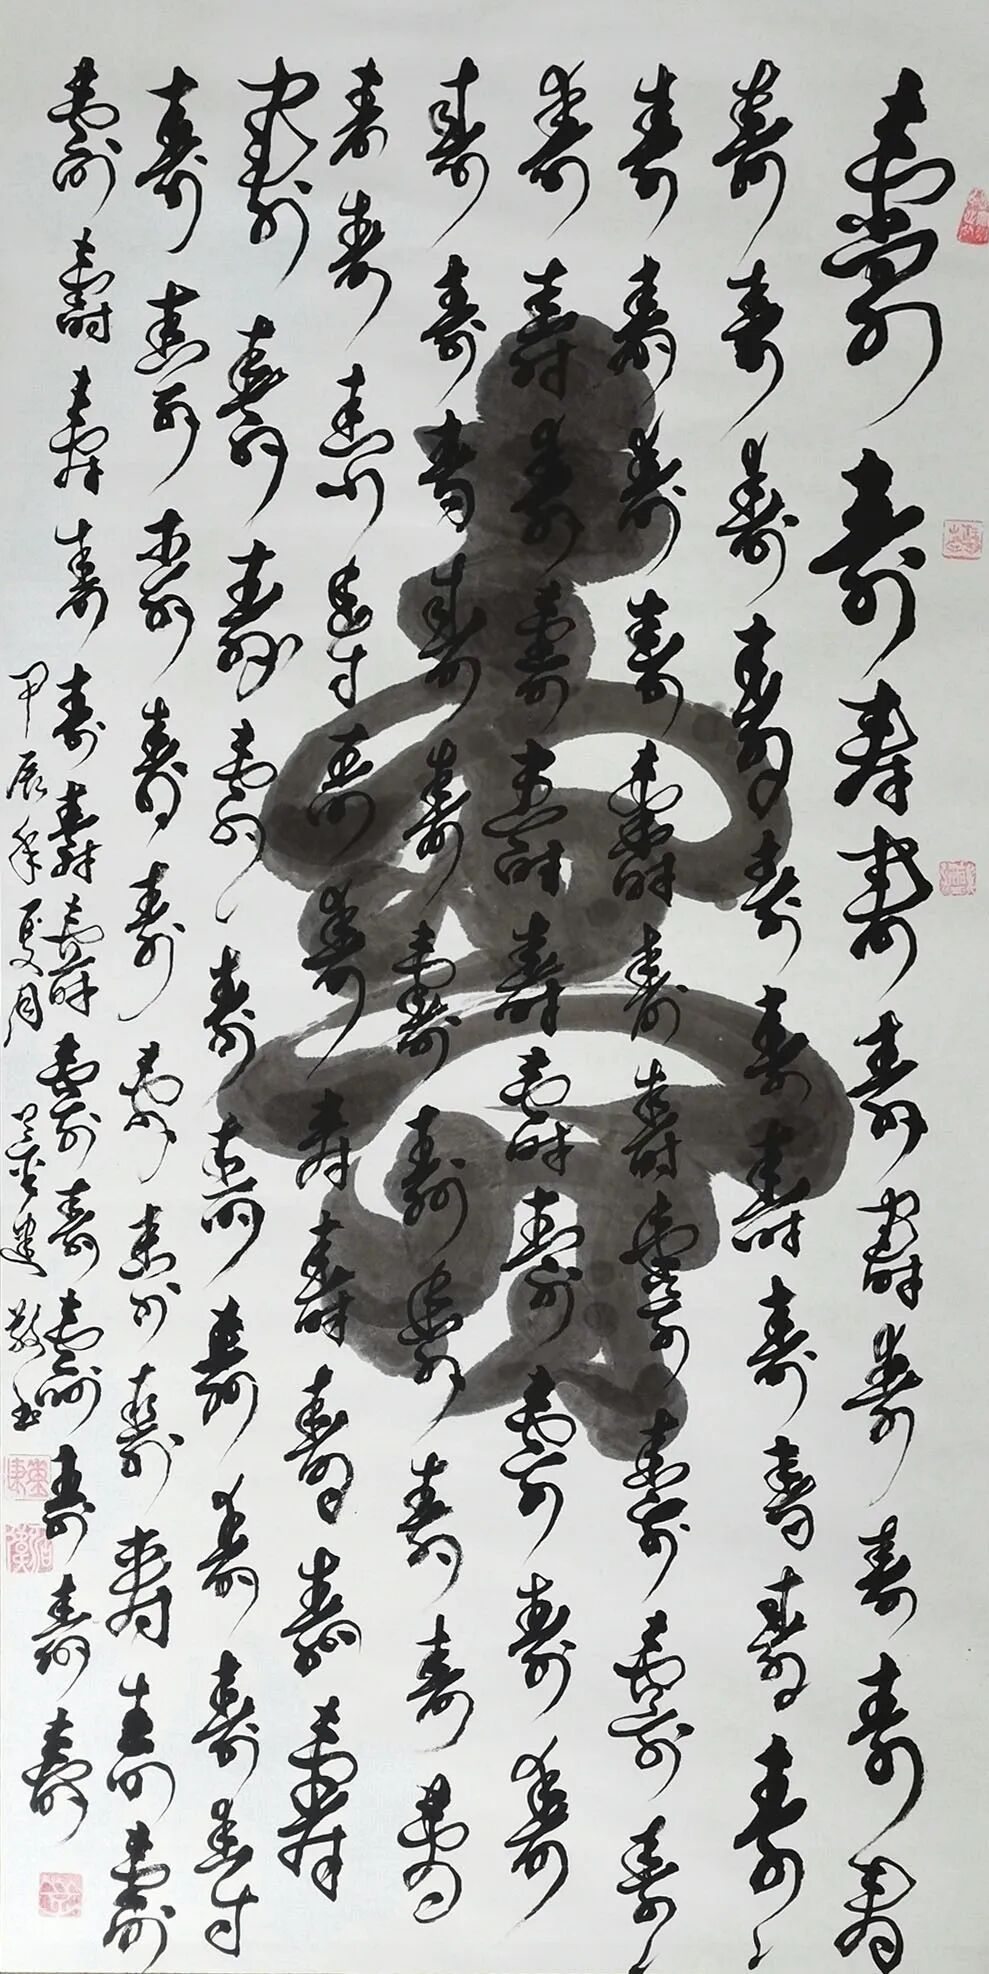 壽壽壽壽壽壽壽壽壽壽
壽壽壽壽壽壽壽壽壽壽壽
壽壽壽壽壽壽壽壽壽壽壽
壽壽壽壽壽壽壽壽壽壽壽
壽壽壽壽壽壽壽壽壽壽壽
壽壽壽壽壽壽壽壽壽壽壽
壽壽壽壽壽壽壽壽壽壽
壽壽壽壽壽壽壽壽壽壽壽
壽壽壽壽壽壽壽壽壽壽壽壽壽
壽
甲辰年夏月 敬书